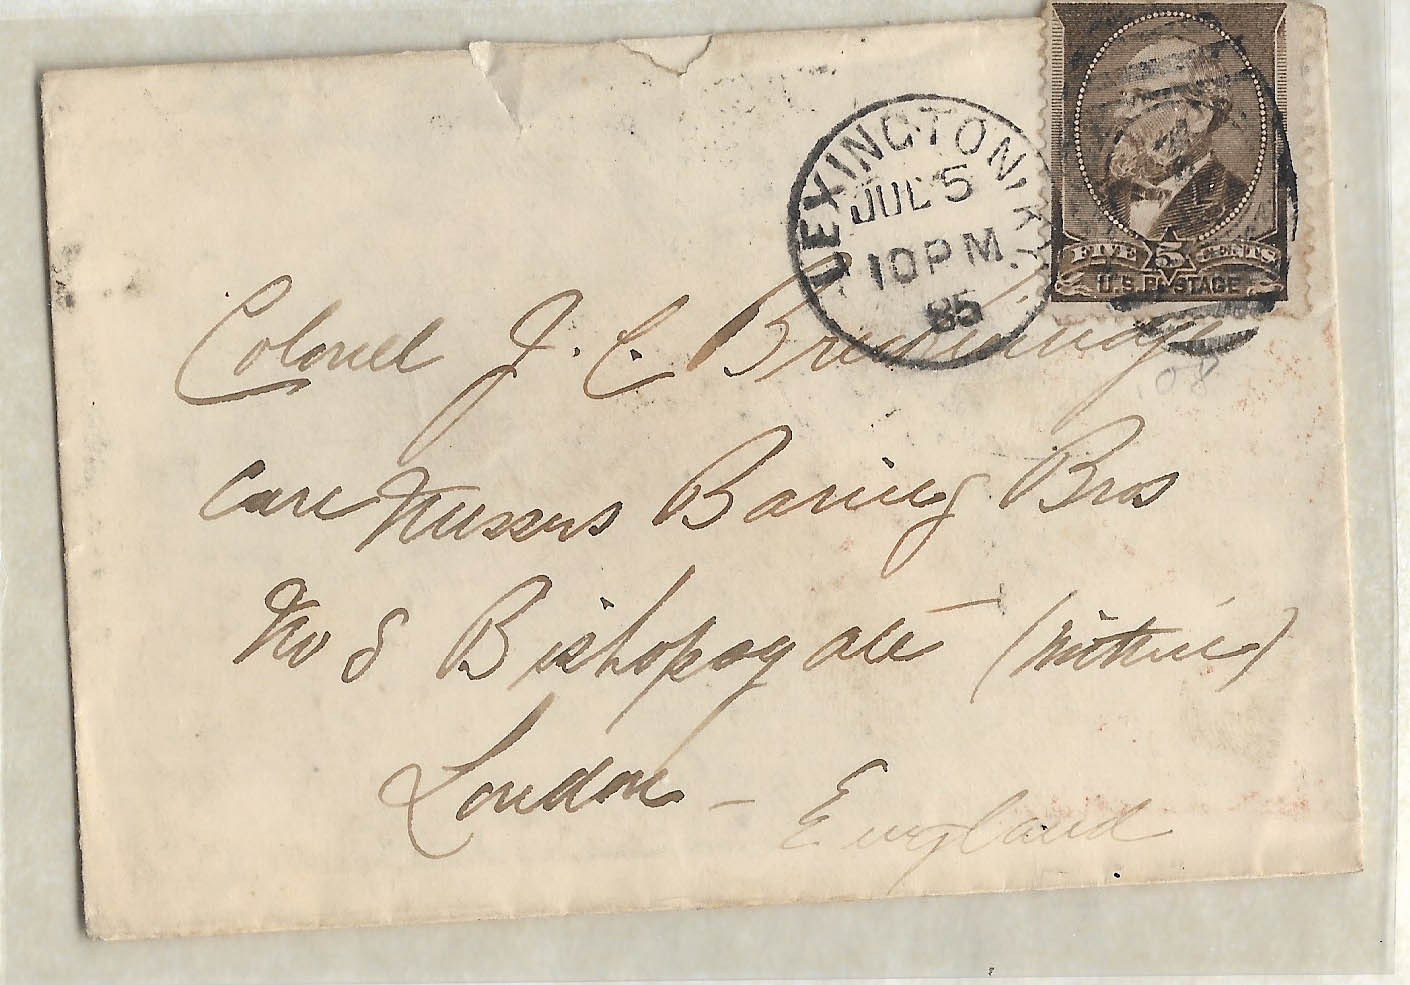 LEXINGTON, KY.
JUL 5
10 PM
85
FIVE 5 CENTS
U.S. POSTAGE
Colonel J. C. Browning
Care Messrs Baring Bros
No 8 Bishopsgate (within)
London - England
108